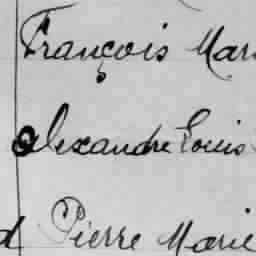 François Mar
Alexandre Louis
d Pierre Marie